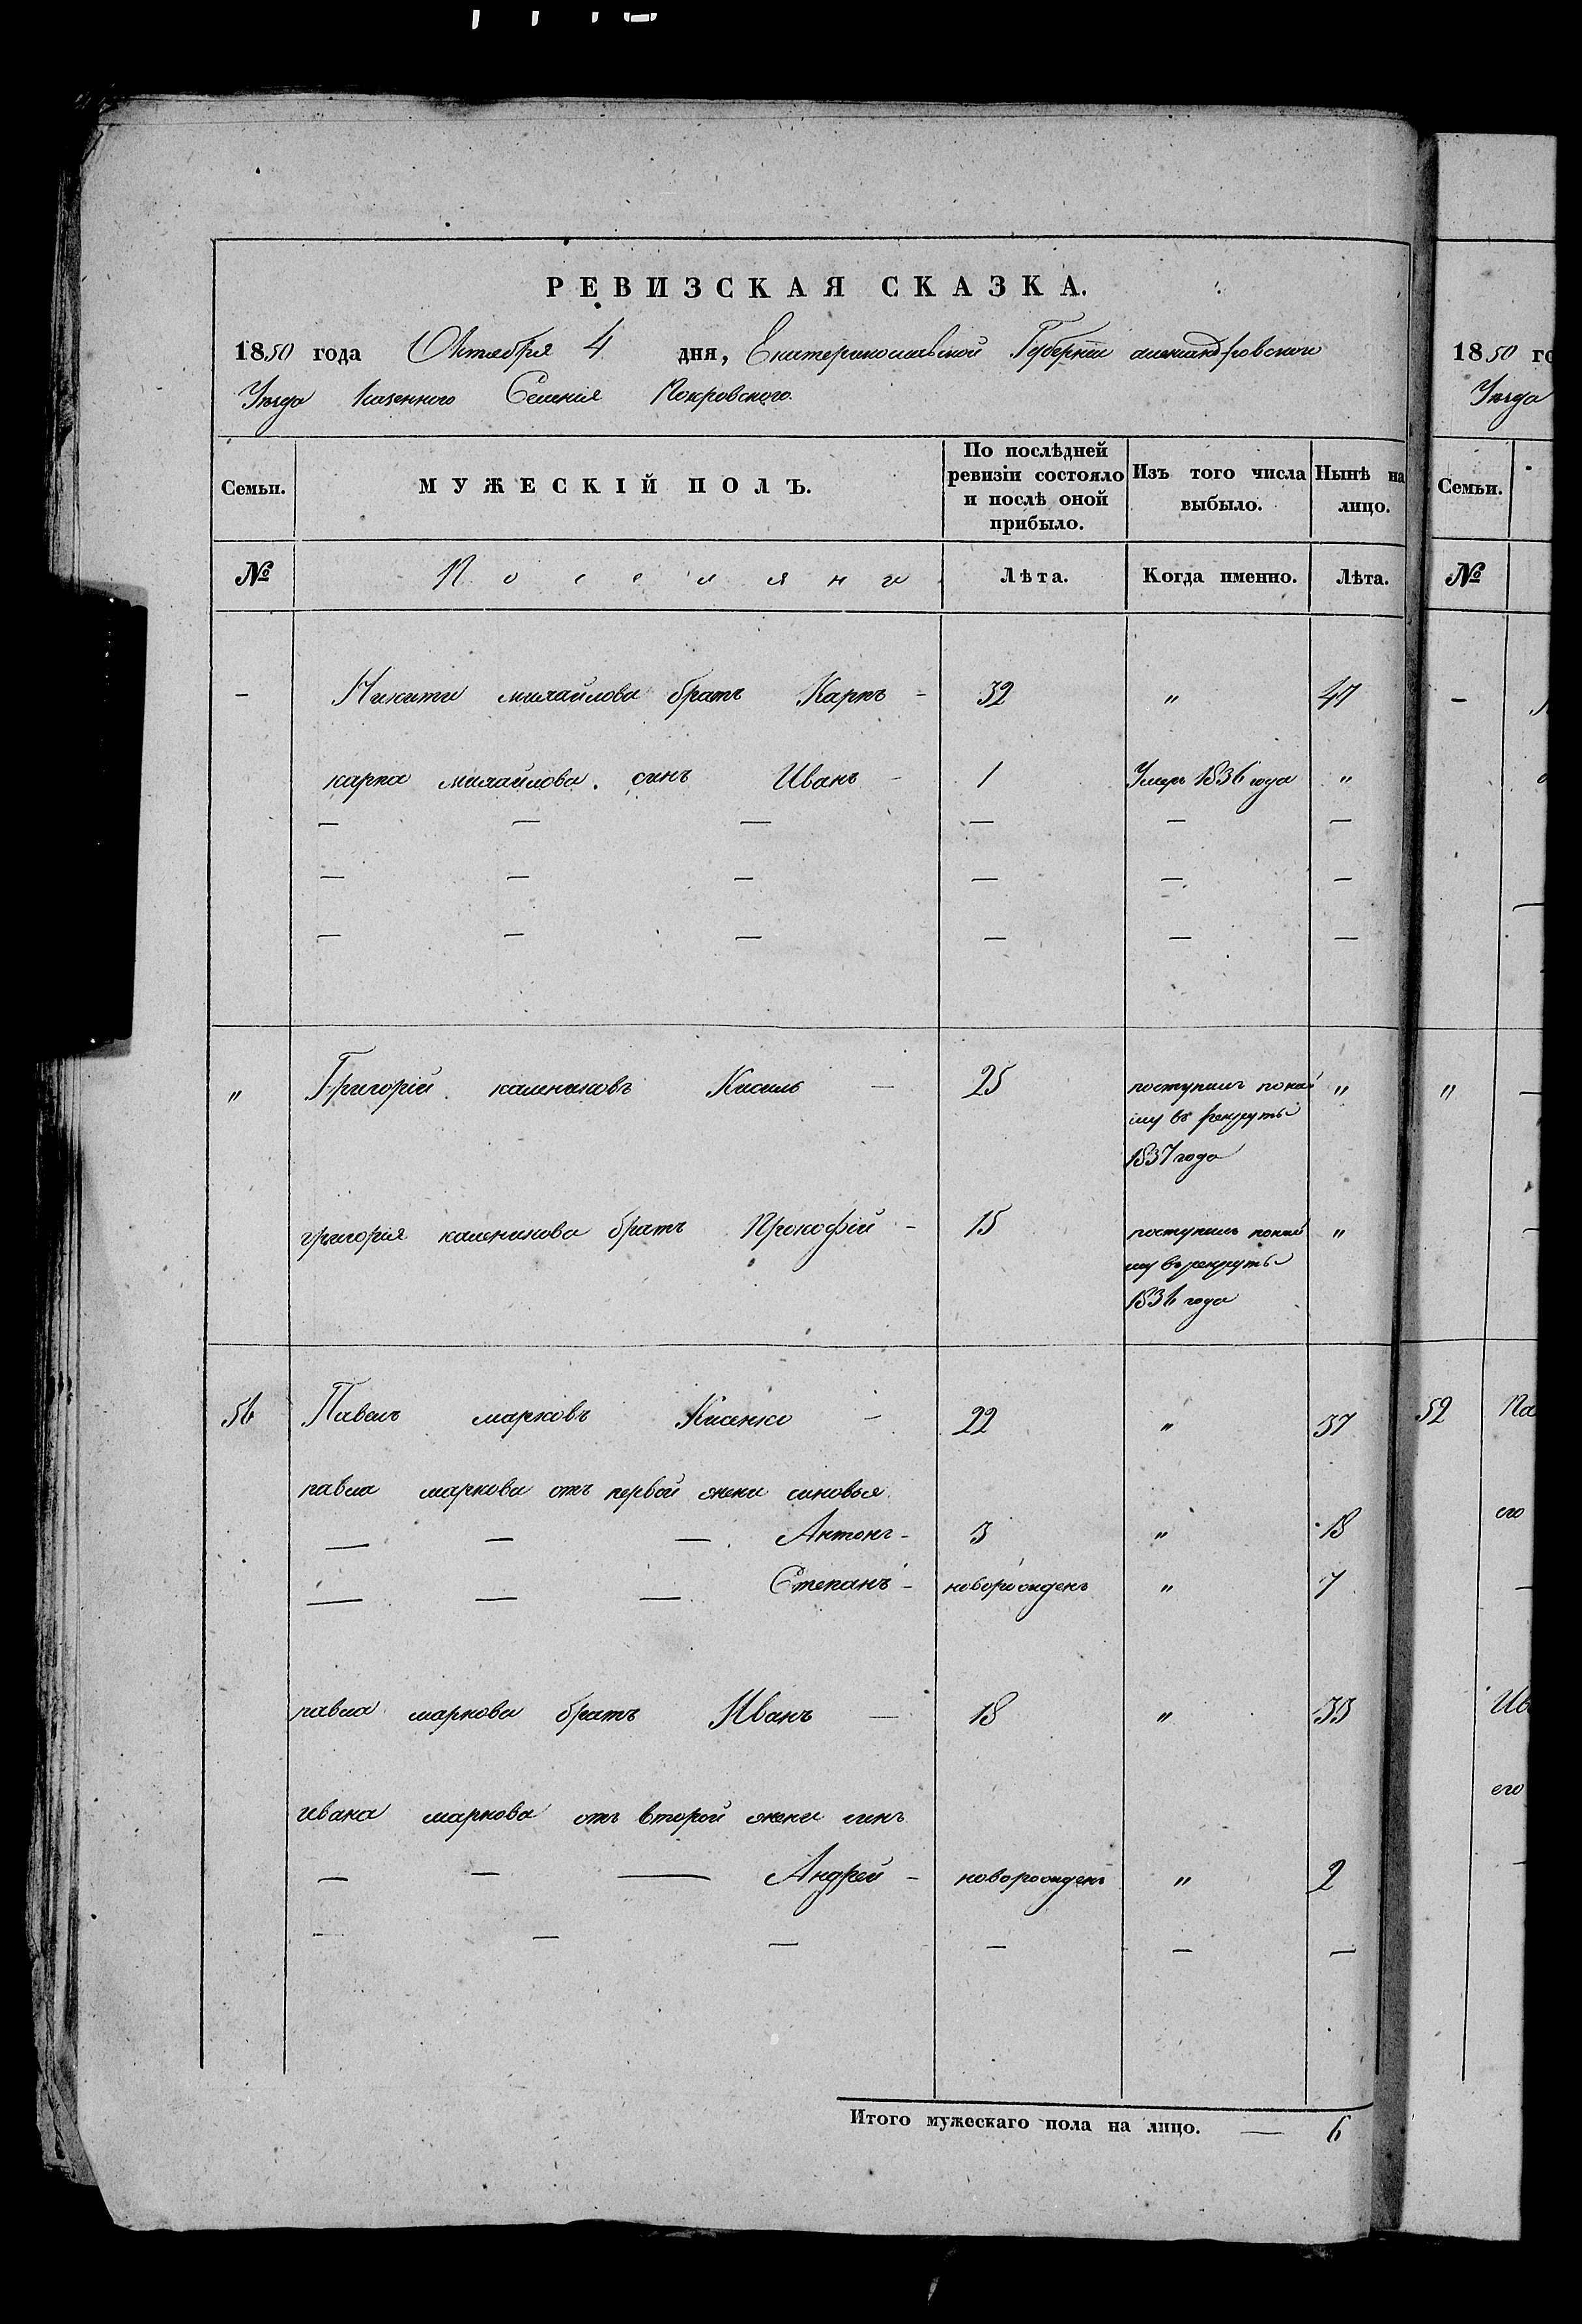 РЕВИЗСКАЯ СКАЗКА.
1850 года Октября 4 дня, Екатеринославской Губернiи александровскаго
Уезда Казенного Селенiя Покровского.
Семьи. МУЖЕСКІЙ ПОЛЪ. По послѣдней ревизіи состояло и послѣ оной прибыло. Изъ того числа выбыло. Нынѣ на лицо.
№ Поселяни Лѣта. Когда именно. Лѣта.
- Никити михайлова братъ Карпъ - 32 " 47
карпа михайлова. синъ Иванъ - 1 Умеръ 1836 года "
— — — — — —
— — — — — —
— — — — — —
" Григорій калениковъ Кисиль — 25 поступилъ
въ рекруты "
1837 года
григорія каленикова братъ Прокофій - 15 поступилъ
въ рекруты "
1836 года
56 Павелъ марковъ Кисенко — 22 " 37
павла маркова отъ первой жени синовья
— — — Антонъ - 3 " 18
— — — Степанъ - новорожденъ " 7
павла маркова братъ Иванъ — 18 " 33
ивана маркова отъ второй жени синъ
— — — Андрей - новорожденъ " 2
— — — — — —
Итого мужескаго пола на лицо. — 6
1850 го
Уезда
Семьи.
№
-
"
52 Па
его
Ив
его